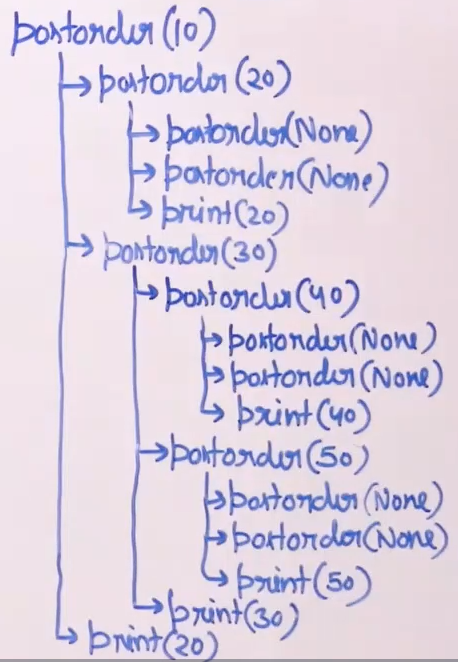 postorder(10)
postorder(20)
postorder(None)
postorder(None)
print(20)
postorder(30)
postorder(40)
postorder(None)
postorder(None)
print(40)
postorder(50)
postorder(None)
postorder(None)
print(50)
print(30)
print(20)